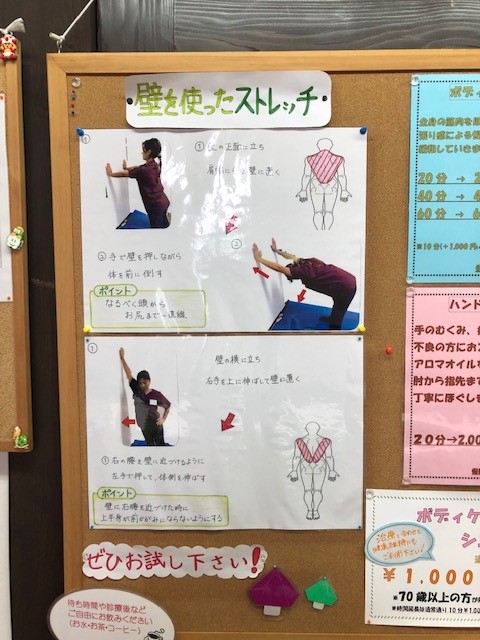 壁を使ったストレッチ
①
①壁の正面に立ち
壁に置く
②
②手で壁を押しながら
体を前に倒す
ポイント
なるべく頭から
お尻まで一直線
①
壁の横に立ち
右手を上に伸ばして壁に置く
①右の腰を壁に近づけるように
左手で押して、体側を伸ばす
ポイント
壁に右腰を近づけた時に
上半身が前かがみにならないようにする
ぜひお試し下さい!
待ち時間や診療後など
ご自由にお飲みください
(お水・お茶・コーヒー)
ボディ
全身の筋肉を
張り感による
緩和していきま
20分 → 2
40分 → 4
60分 → 6
※10分(+1,000円
ハンド
手のむくみ、
不良の方にお
アロマオイルを
肘から指先まで
丁寧にほぐし
20分→2,00
ボディケ
治療と合わせて
ご利用下さい♪
¥1,000
※70歳以上の方が
※時間延長は通常通り10分¥1,00